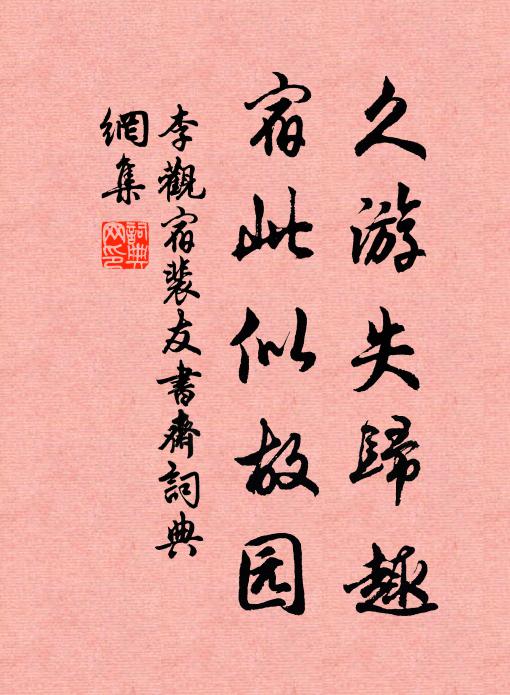 久游失歸趣
宿此似故园
李觀宿裴友書齋詞典
網集
詞典
网印